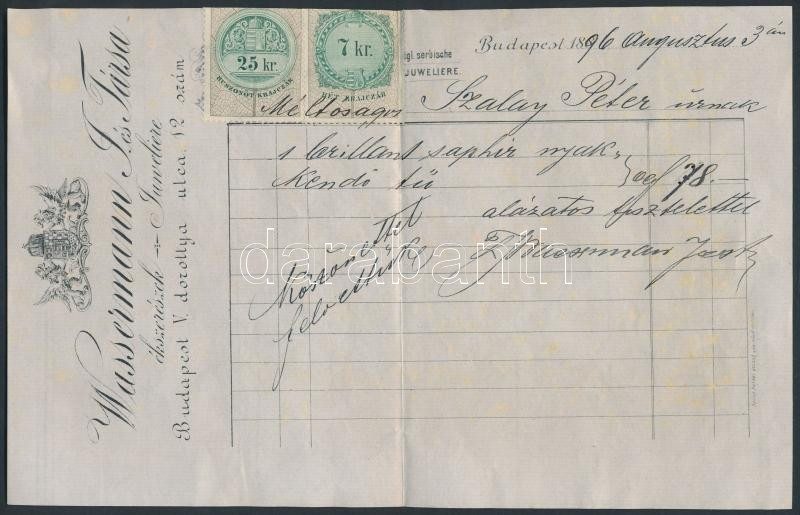 Wassermann J. és Társa
ékszerészek Juweliere
Budapest V. dorottya utca 12 szám
25 kr.
HUSZONÖT KRAJCZÁR
7 kr.
HÉT KRAJCZÁR
kgl. serbische
JUWELIERE.
Budapest 1896 Augusztus 3 án
Méltoságos Szalay Péter úrnak
1 brillant saphir nyak-
kendő tű 78.—
alázatos tisztelettel
Wassermann
Köszönettel
felvettük
darabanth